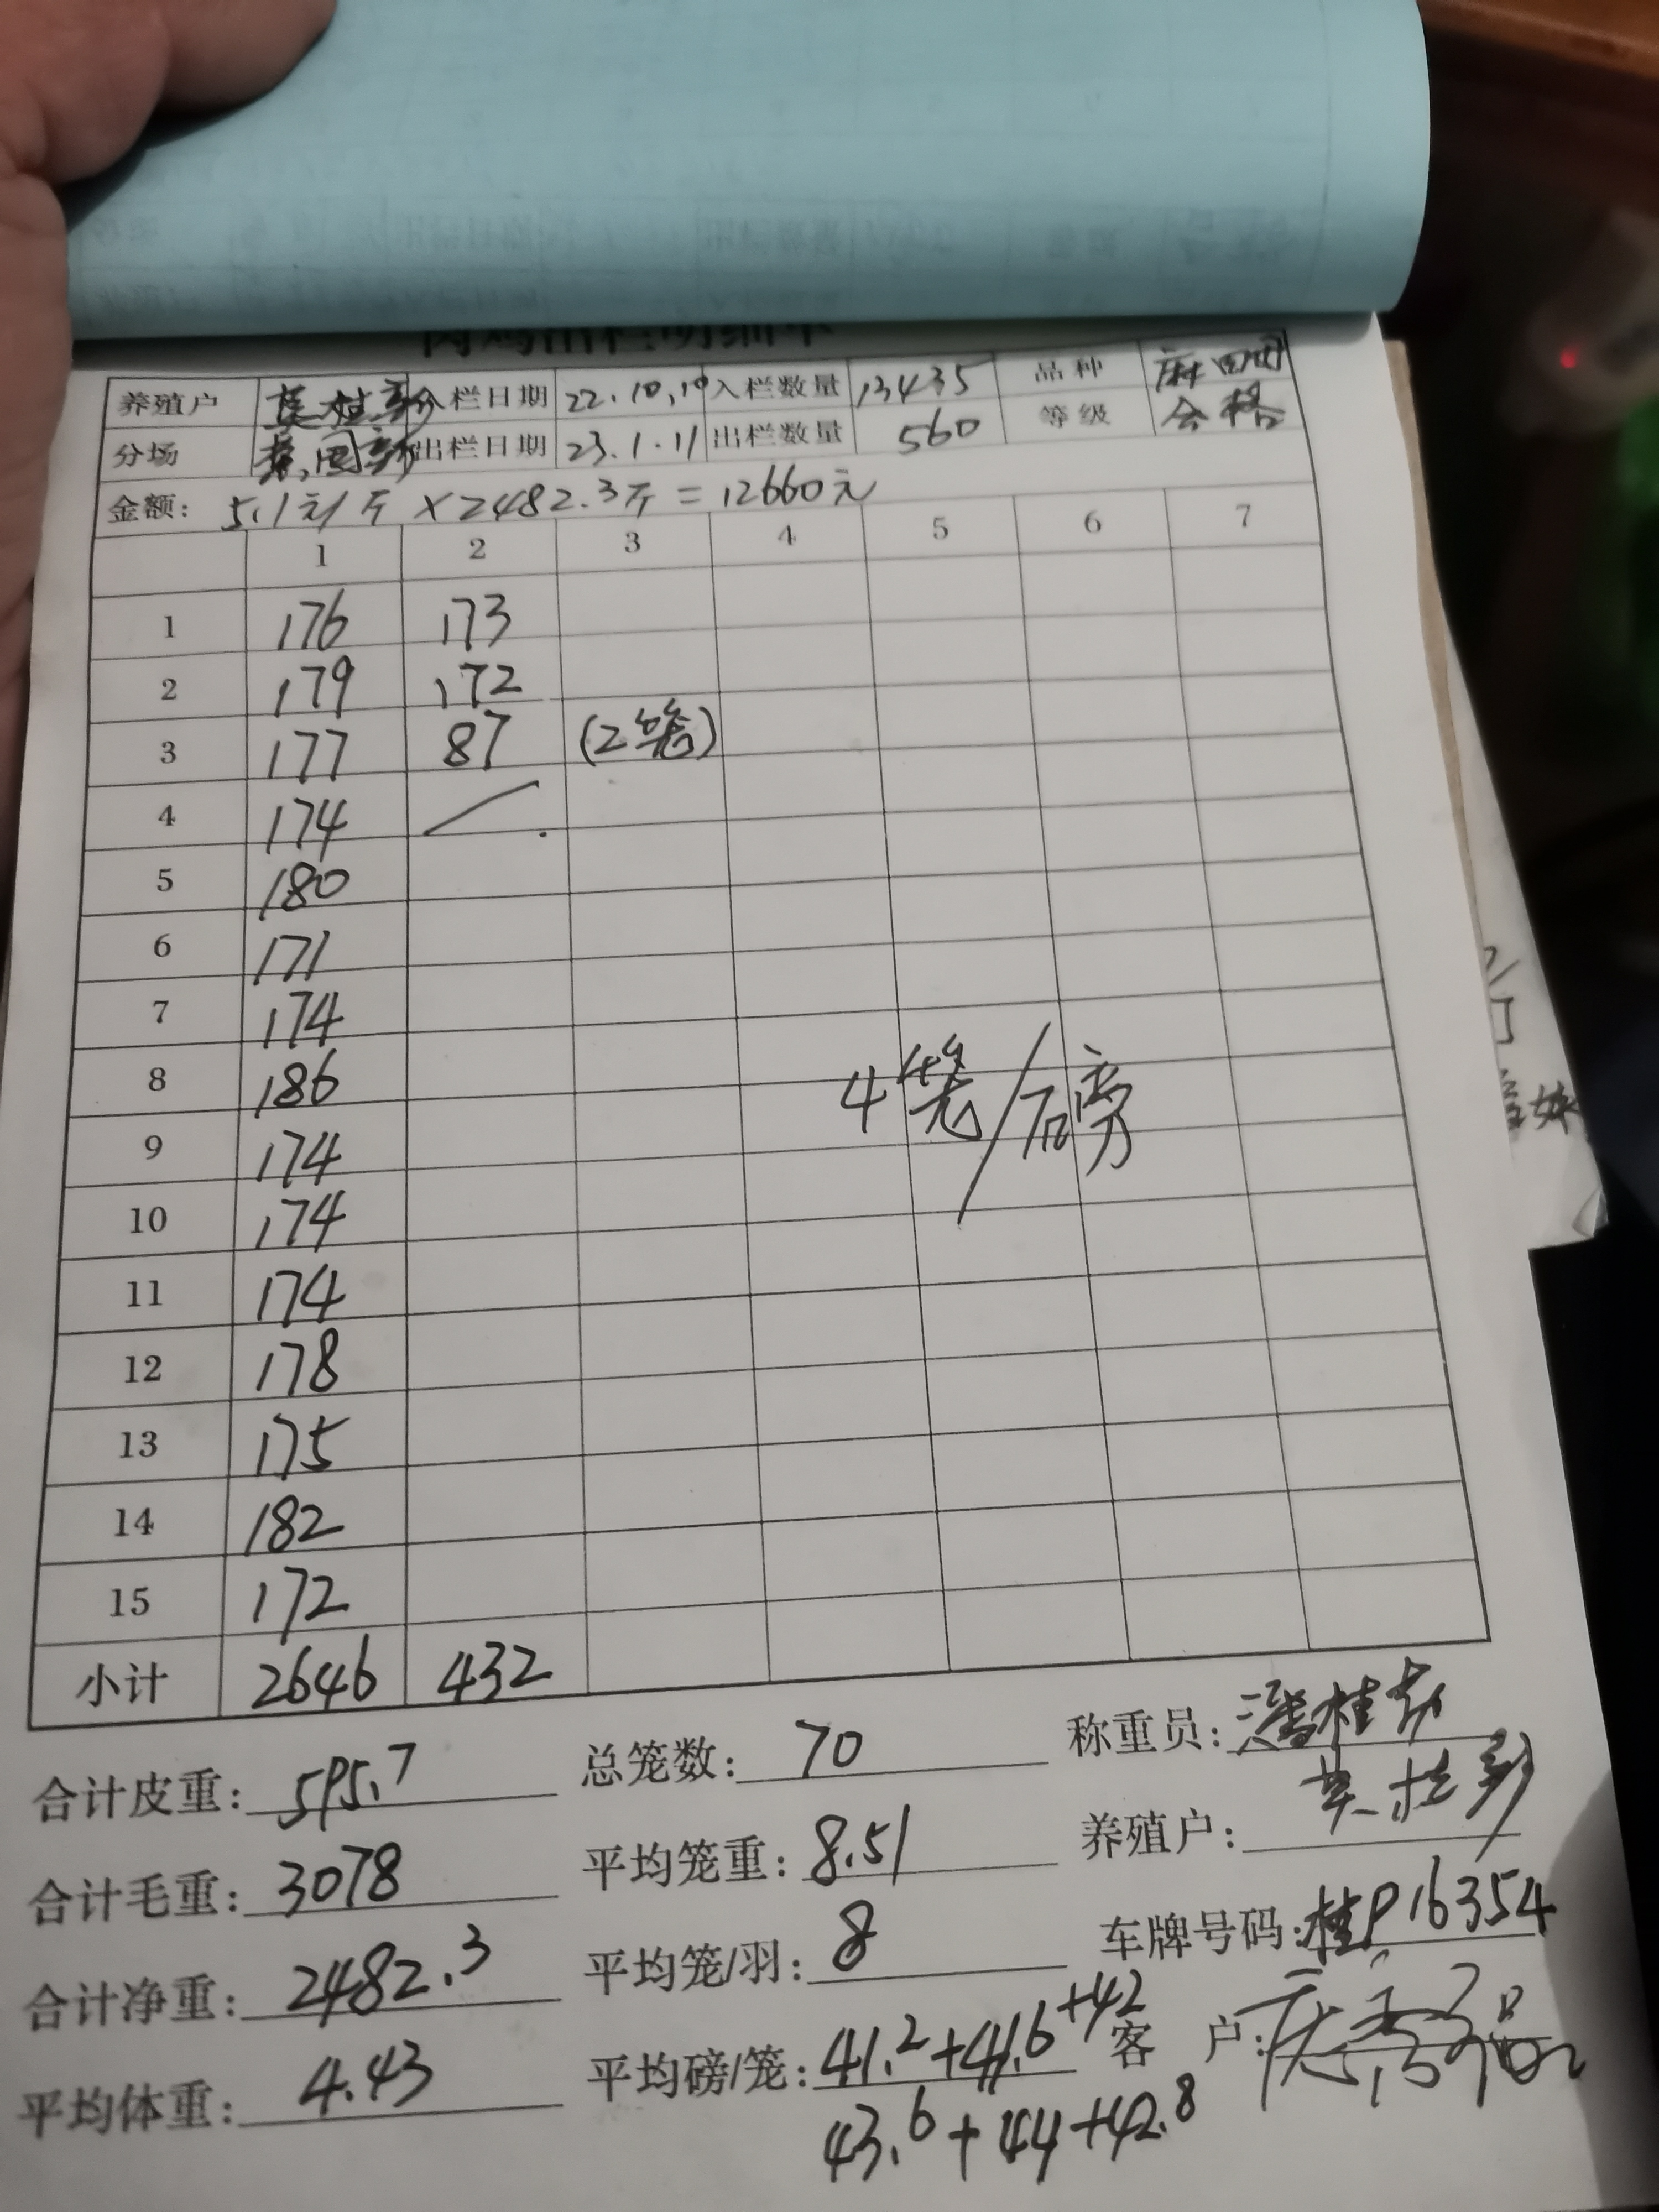 肉鸡出栏明细单
养殖户 入栏日期 22.10.10 入栏数量 13435 品种 麻
分场 出栏日期 23.1.11 出栏数量 560 等级 合格
金额: 5.1元/斤×2482.3斤=12660元
1 2 3 4 5 6 7
1 176 173
2 179 172
3 177 87 (2笼)
4 174
5 180
6 171
7 174
8 186
4笼/磅
9 174
10 174
11 174
12 178
13 175
14 182
15 172
小计 2646 432
合计皮重: 595.7 总笼数: 70 称重员: 潘桂
合计毛重: 3078 平均笼重: 8.51 养殖户:
合计净重: 2482.3 平均笼/羽: 8 车牌号码: 桂P16354
平均体重: 4.43 平均磅/笼: 41.2+41.6+42 客户:
43.6+44+42.8